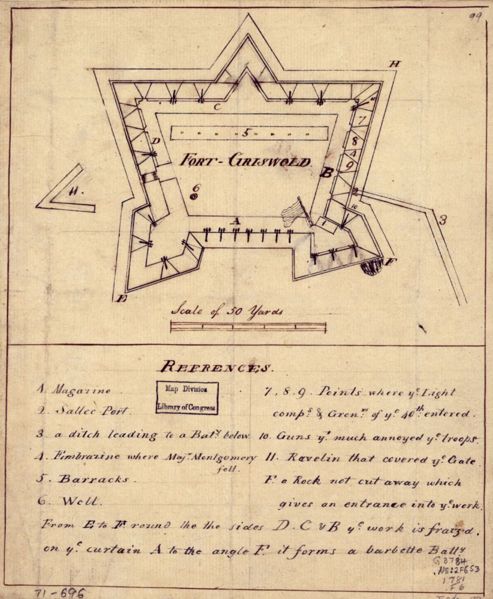 99
H
C
7
5
8
D
FORT-GRISWOLD
4
B
9
6
11.
A
3
E
F
Scale of 50 Yards
REFERENCES.
1. Magazine
2. Sallee Port.
3 a ditch leading to a Baty. below.
4. Embrazine where Majr. Montgomery
fell.
5. Barracks.
6. Well.
Map Division
Library of Congress
7, 8, 9. Points where ye. Light
compy. & Grenrs. of ye. 40th entered.
10. Guns yt. much annoyed ye. troops.
11. Ravelin that covered ye. Gate.
F. a Rock not cut away which
gives an entrance into ye. work.
From E to F round the the sides D. C & B ye. work is fraized,
on ye. curtain A to the angle F. it forms a barbette Batty
G3784
.N522F6S3
1781
.F6
71-696